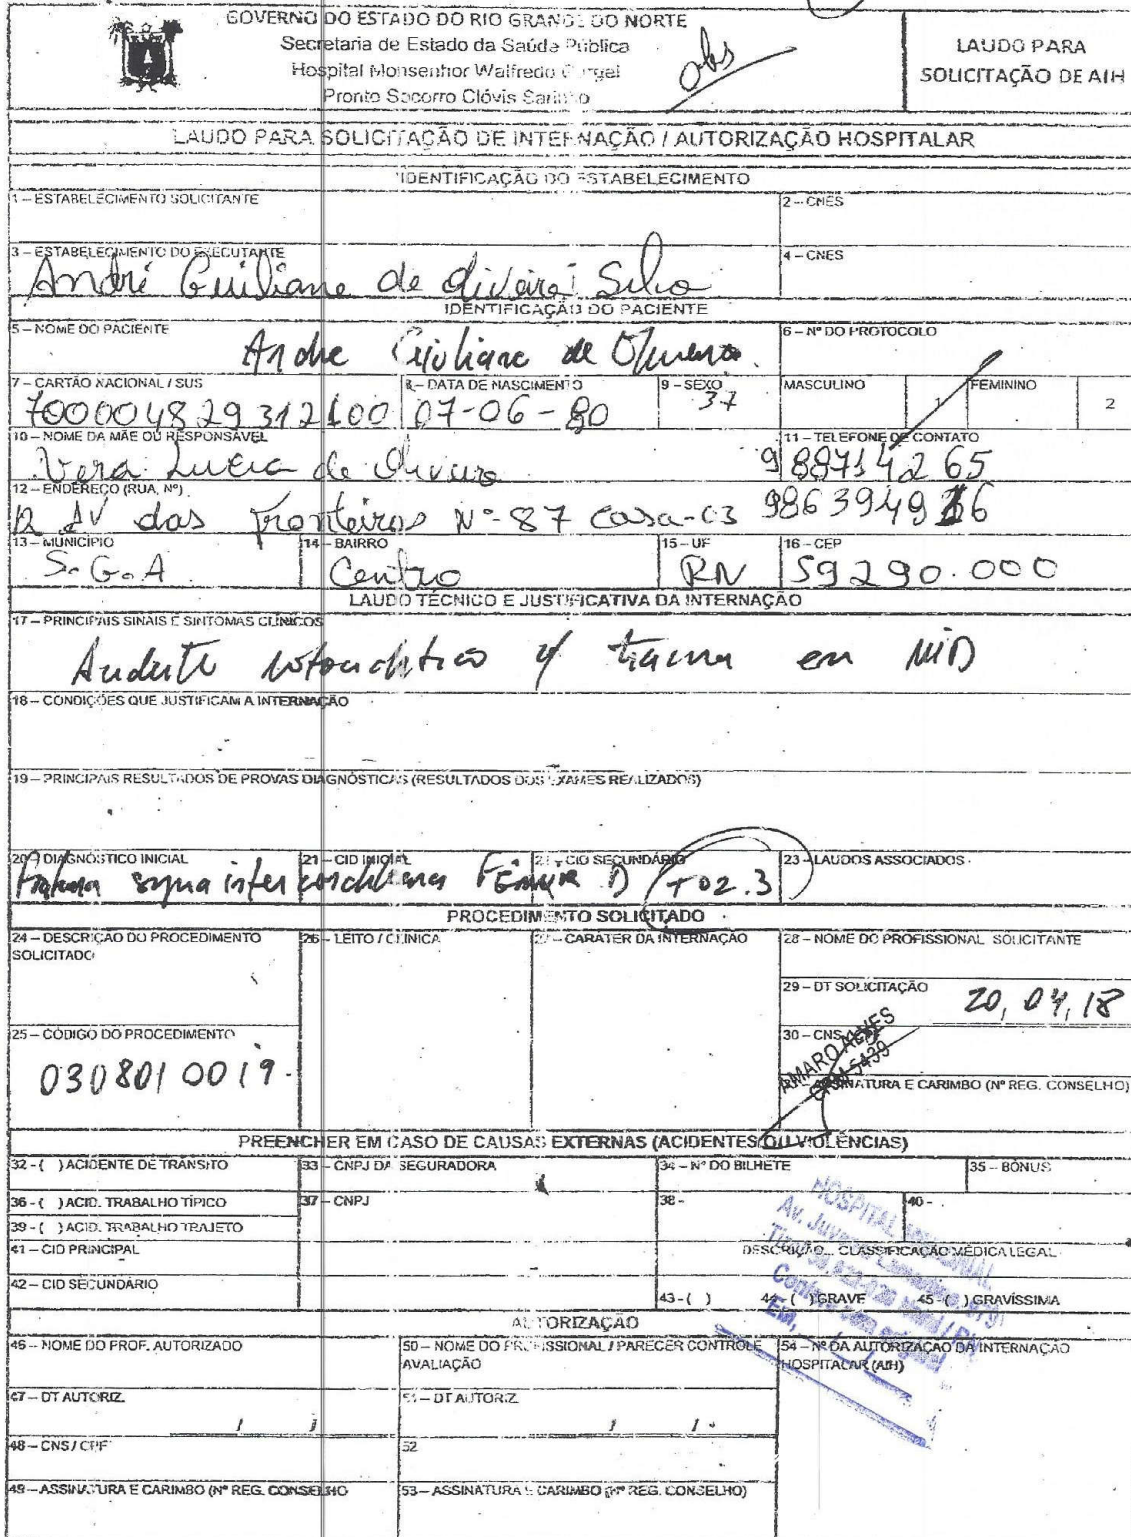 GOVERNO DO ESTADO DO RIO GRANDE DO NORTE
Secretaria de Estado da Saúde Pública
Hospital Monsenhor Walfredo Gurgel
Pronto Socorro Clóvis Sarinho
obs
LAUDO PARA
SOLICITAÇÃO DE AIH
LAUDO PARA SOLICITAÇÃO DE INTERNAÇÃO / AUTORIZAÇÃO HOSPITALAR
IDENTIFICAÇÃO DO ESTABELECIMENTO
1 – ESTABELECIMENTO SOLICITANTE
2 – CNES
3 – ESTABELECIMENTO DO EXECUTANTE
4 – CNES
André Guiliane de Oliveira Silva
IDENTIFICAÇÃO DO PACIENTE
5 – NOME DO PACIENTE
6 – Nº DO PROTOCOLO
Andre Giuliane de Oliveira
7 – CARTÃO NACIONAL / SUS
8 – DATA DE NASCIMENTO
9 – SEXO
MASCULINO
1
FEMININO
2
700004829312100
07-06-80
37
10 – NOME DA MÃE OU RESPONSÁVEL
11 – TELEFONE DE CONTATO
Vera Lucia de Oliveira
988714265
12 – ENDEREÇO (RUA, Nº)
R AV das Fronteiras Nº-87 casa-03
13 – MUNICÍPIO
14 – BAIRRO
15 – UF
16 – CEP
S.G.A
Centro
RN
59290.000
LAUDO TÉCNICO E JUSTIFICATIVA DA INTERNAÇÃO
17 – PRINCIPAIS SINAIS E SINTOMAS CLÍNICOS
trauma em MID
18 – CONDIÇÕES QUE JUSTIFICAM A INTERNAÇÃO
19 – PRINCIPAIS RESULTADOS DE PROVAS DIAGNÓSTICAS (RESULTADOS DOS EXAMES REALIZADOS)
20 – DIAGNÓSTICO INICIAL
21 – CID INICIAL
22 – CID SECUNDÁRIO
23 – LAUDOS ASSOCIADOS
Fratura supra inter condiliana FÊMUR D
T02.3
PROCEDIMENTO SOLICITADO
24 – DESCRIÇÃO DO PROCEDIMENTO SOLICITADO
26 – LEITO / CLÍNICA
27 – CARATER DA INTERNAÇÃO
28 – NOME DO PROFISSIONAL SOLICITANTE
29 – DT SOLICITAÇÃO
20, 04, 18
25 – CÓDIGO DO PROCEDIMENTO
0308010019.
30 – CNS
AMARO ALVES
CRM 5439
ASSINATURA E CARIMBO (Nº REG. CONSELHO)
PREENCHER EM CASO DE CAUSAS EXTERNAS (ACIDENTES OU VIOLÊNCIAS)
32 - ( ) ACIDENTE DE TRÂNSITO
33 – CNPJ DA SEGURADORA
34 – Nº DO BILHETE
35 – BÔNUS
36 - ( ) ACID. TRABALHO TÍPICO
37 – CNPJ
38 -
40 -
39 - ( ) ACID. TRABALHO TRAJETO
41 – CID PRINCIPAL
DESCRIÇÃO... CLASSIFICAÇÃO MÉDICA LEGAL
42 – CID SECUNDÁRIO
43 - ( )
44 - ( ) GRAVE
45 - ( ) GRAVÍSSIMA
HOSPITAL
Confere com original
Em,
AUTORIZAÇÃO
46 – NOME DO PROF. AUTORIZADO
50 – NOME DO PROFISSIONAL / PARECER CONTROLE AVALIAÇÃO
54 – Nº DA AUTORIZAÇÃO DA INTERNAÇÃO HOSPITALAR (AIH)
47 – DT AUTORIZ.
/ /
51 – DT AUTORIZ.
/ /
48 – CNS / CPF
52
49 – ASSINATURA E CARIMBO (Nº REG. CONSELHO
53 – ASSINATURA E CARIMBO (Nº REG. CONSELHO)